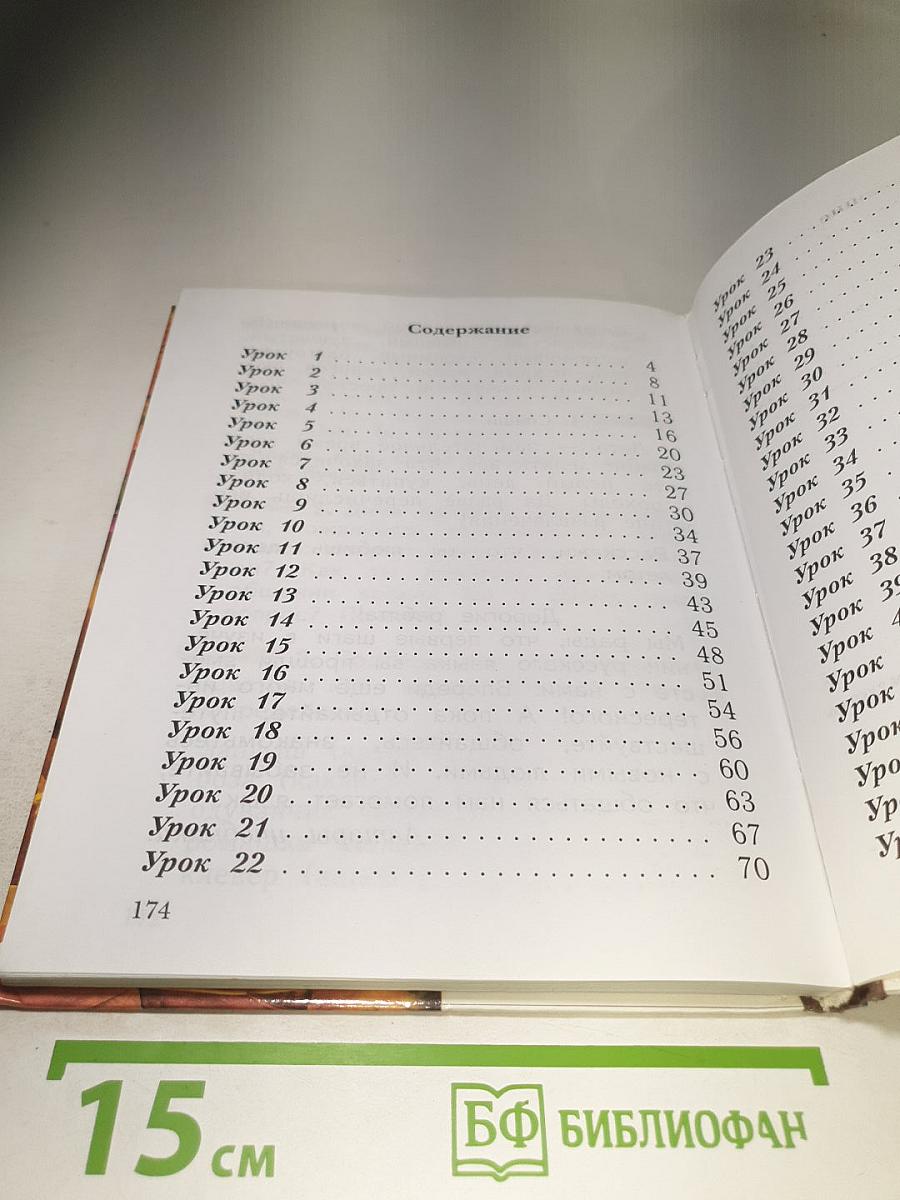 Содержание
Урок 1 . . . . . . . . . . . . . . . . . . . . . . . . . . 4
Урок 2 . . . . . . . . . . . . . . . . . . . . . . . . . . 8
Урок 3 . . . . . . . . . . . . . . . . . . . . . . . . . . 11
Урок 4 . . . . . . . . . . . . . . . . . . . . . . . . . . 13
Урок 5 . . . . . . . . . . . . . . . . . . . . . . . . . . 16
Урок 6 . . . . . . . . . . . . . . . . . . . . . . . . . . 20
Урок 7 . . . . . . . . . . . . . . . . . . . . . . . . . . 23
Урок 8 . . . . . . . . . . . . . . . . . . . . . . . . . . 27
Урок 9 . . . . . . . . . . . . . . . . . . . . . . . . . . 30
Урок 10 . . . . . . . . . . . . . . . . . . . . . . . . . . 34
Урок 11 . . . . . . . . . . . . . . . . . . . . . . . . . . 37
Урок 12 . . . . . . . . . . . . . . . . . . . . . . . . . . 39
Урок 13 . . . . . . . . . . . . . . . . . . . . . . . . . . 43
Урок 14 . . . . . . . . . . . . . . . . . . . . . . . . . . 45
Урок 15 . . . . . . . . . . . . . . . . . . . . . . . . . . 48
Урок 16 . . . . . . . . . . . . . . . . . . . . . . . . . . 51
Урок 17 . . . . . . . . . . . . . . . . . . . . . . . . . . 54
Урок 18 . . . . . . . . . . . . . . . . . . . . . . . . . . 56
Урок 19 . . . . . . . . . . . . . . . . . . . . . . . . . . 60
Урок 20 . . . . . . . . . . . . . . . . . . . . . . . . . . 63
Урок 21 . . . . . . . . . . . . . . . . . . . . . . . . . . 67
Урок 22 . . . . . . . . . . . . . . . . . . . . . . . . . . 70
174
Урок 23 . . . . . . . .
Урок 24 . . . . . . . .
Урок 25 . . . . . . . .
Урок 26 . . . . . . . .
Урок 27 . . . . . . . .
Урок 28 . . . . . . . .
Урок 29 . . . . . . . .
Урок 30 . . . . . . . .
Урок 31 . . . . . . .
Урок 32 . . . . . .
Урок 33 . . . . .
Урок 34 . . . .
Урок 35 . . .
Урок 36 . .
Урок 37 .
Урок 38
Урок
Урок
Урок
Урок
Урок
15 см
БФ БИБЛИОФАН